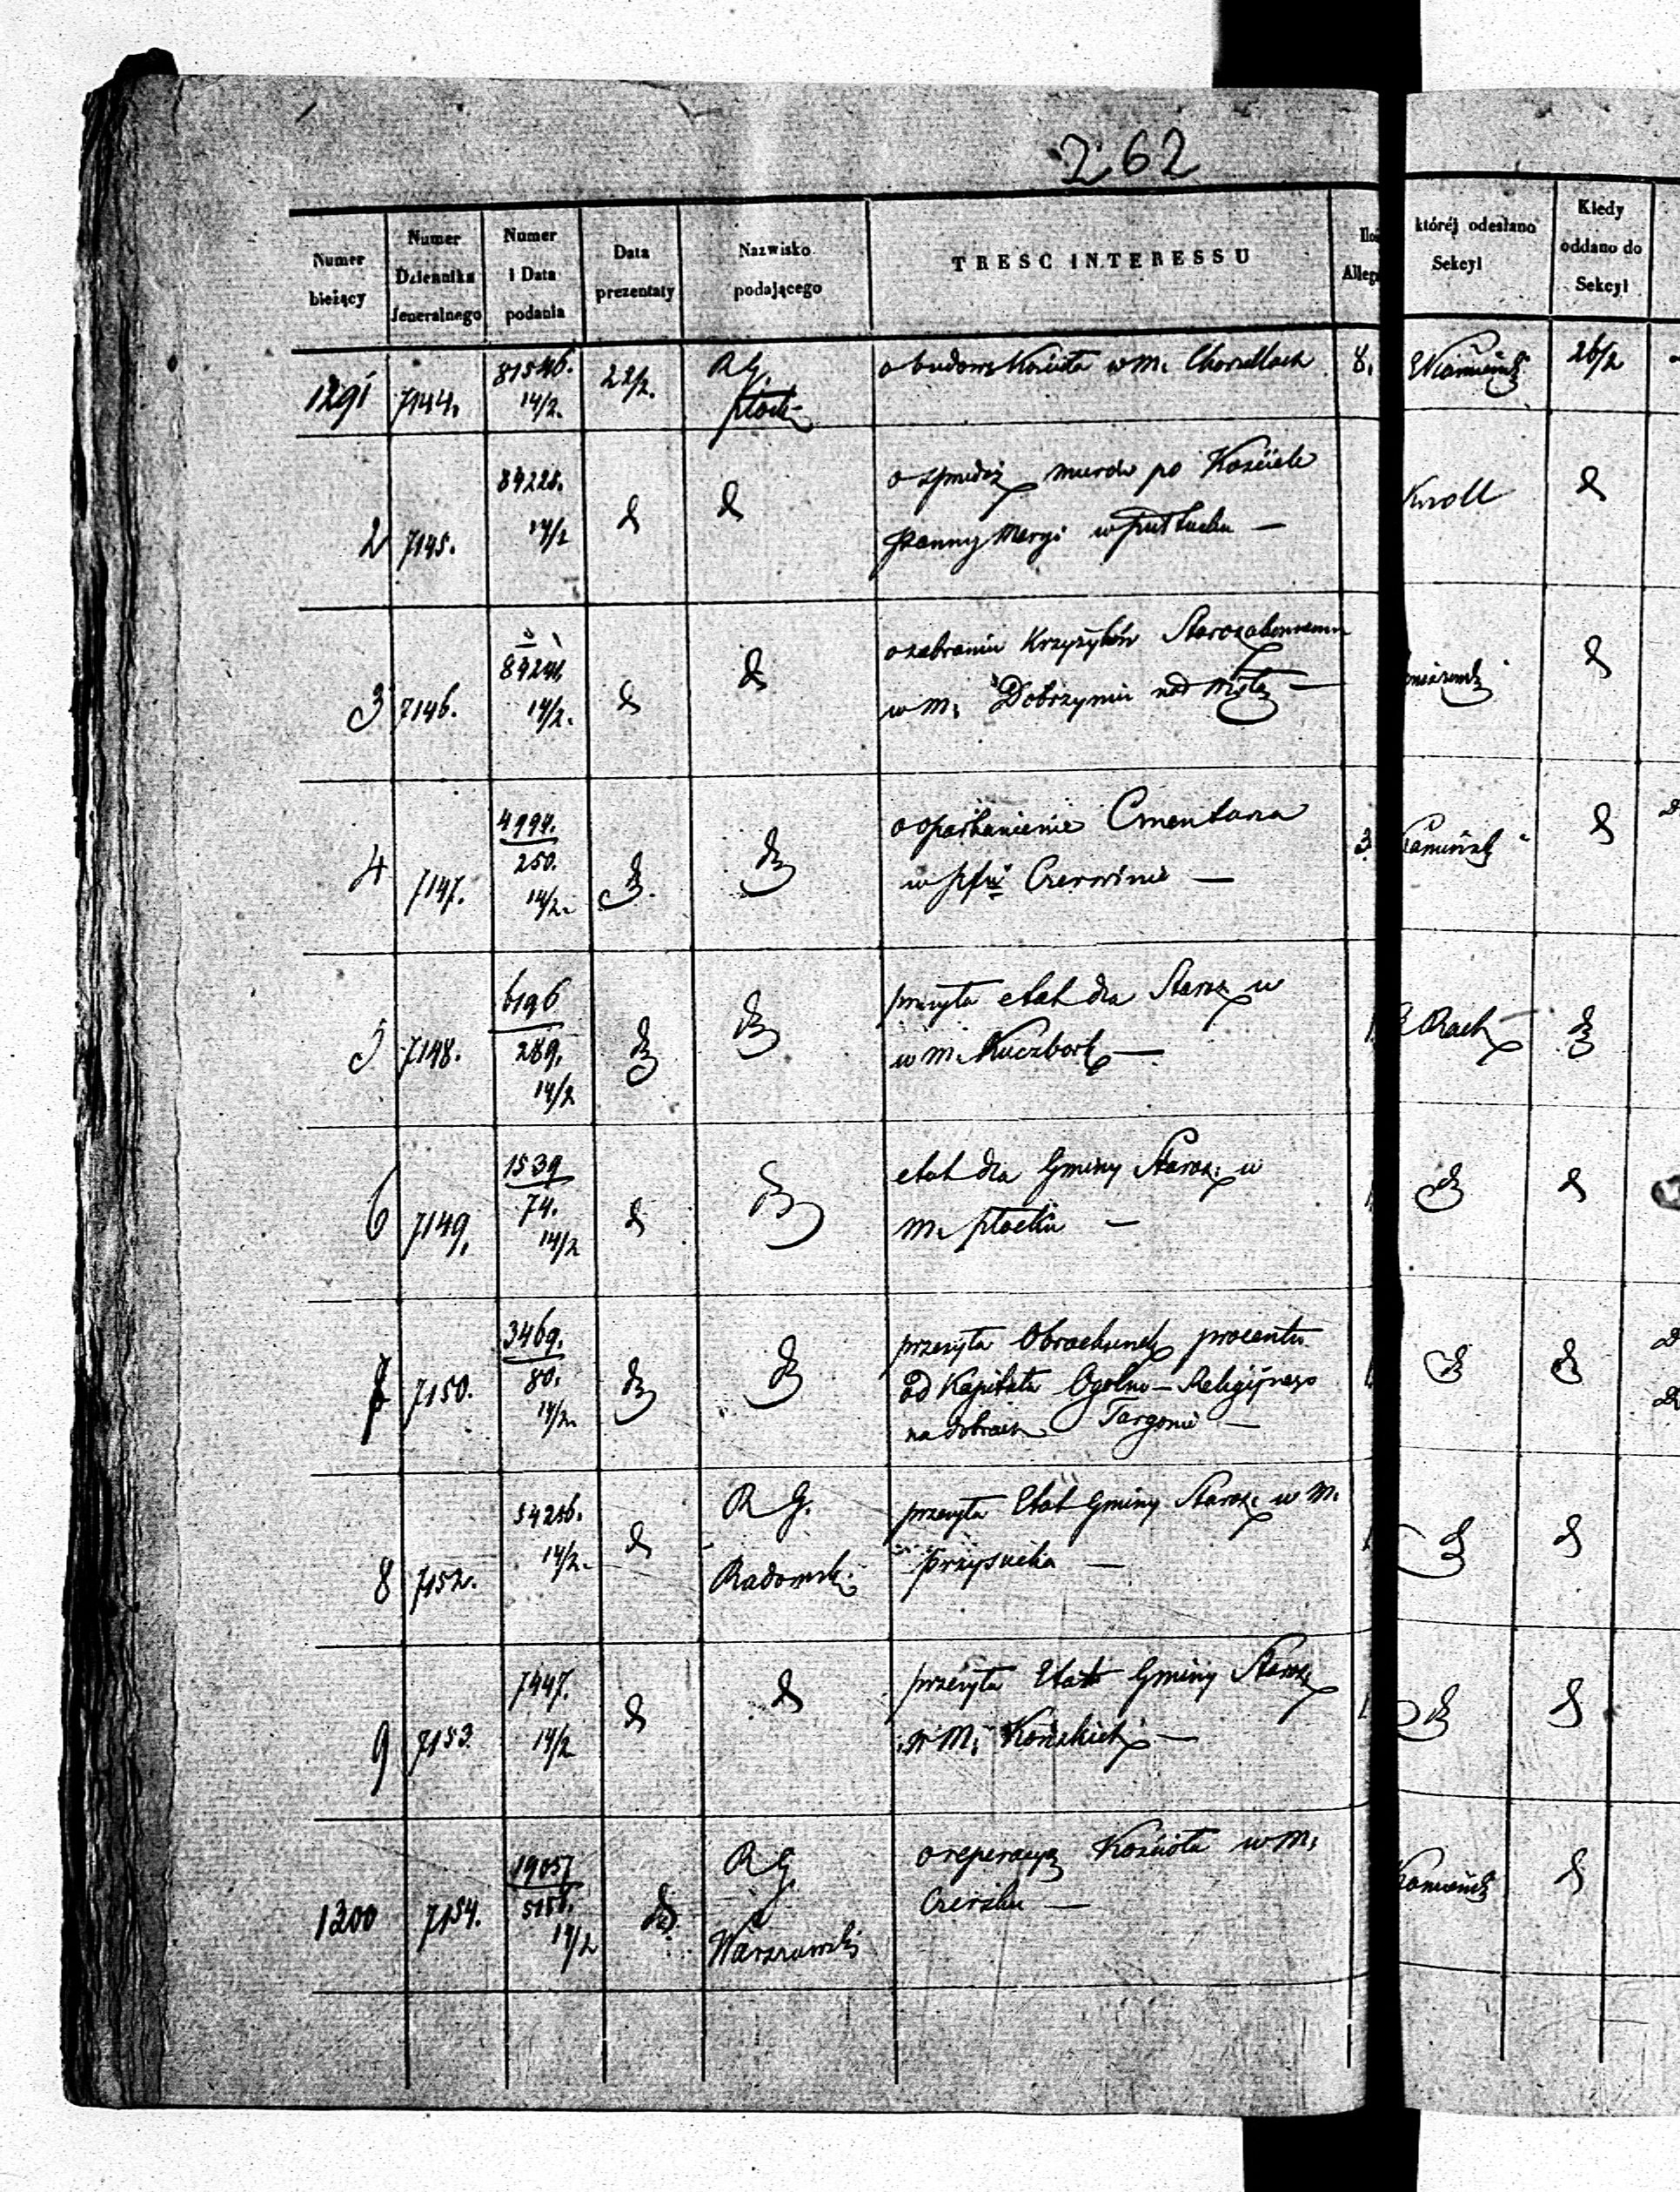 262
Numer bieżący
Numer Dziennika Jeneralnego
Numer i Data podania
Data prezentaty
Nazwisko podającego
TRESC INTERESSU
której odesłano Sekcyi
Kiedy oddano do Sekcyi
1291 7144. 81546. 14/2. 22/2. R G. Płock. o budowę Kościoła w m. Chorzellach 8. 26/2
2 7145. 84228. 14/2 d d o sprzedaż murów po Kościele Knoll d
Panny Maryi w Pułtusku —
3 7146. 84241. 14/2. d d o zabraniu Krzyżyków Starozakonnemu d
w m. Dobrzyniu nad Wisłą —
4 7147. 4994. 250. 14/2. d d o oparkanienie Cmentarza 3. Kamiński d
w Czerwinie —
5 7148. 6196 289. 14/2 d d przesyła etat dla Staroz. w Rack d
w m. Kuczbork —
6 7149. 1539 74. 14/2 d d etat dla Gminy Staroz. w d d
m. Płocku —
7 7150. 3469. 80. 14/2. d d przesyła Obrachunek procentu d d
od Kapitału Ogólno-Religijnego
na dobrach Targonie —
8 7152. 54256. 14/2. d R G. Radomski przesyła Etat Gminy Staroz. w m. d d
Przysucha —
9 7153. 7447. 14/2 d d przesyła Etat Gminy Staroz. d d
w m. Końskich —
1300 7154. 19057 5156. 14/2 d R G Warszawski o reperacyą Kościoła w m. d
Czersku —